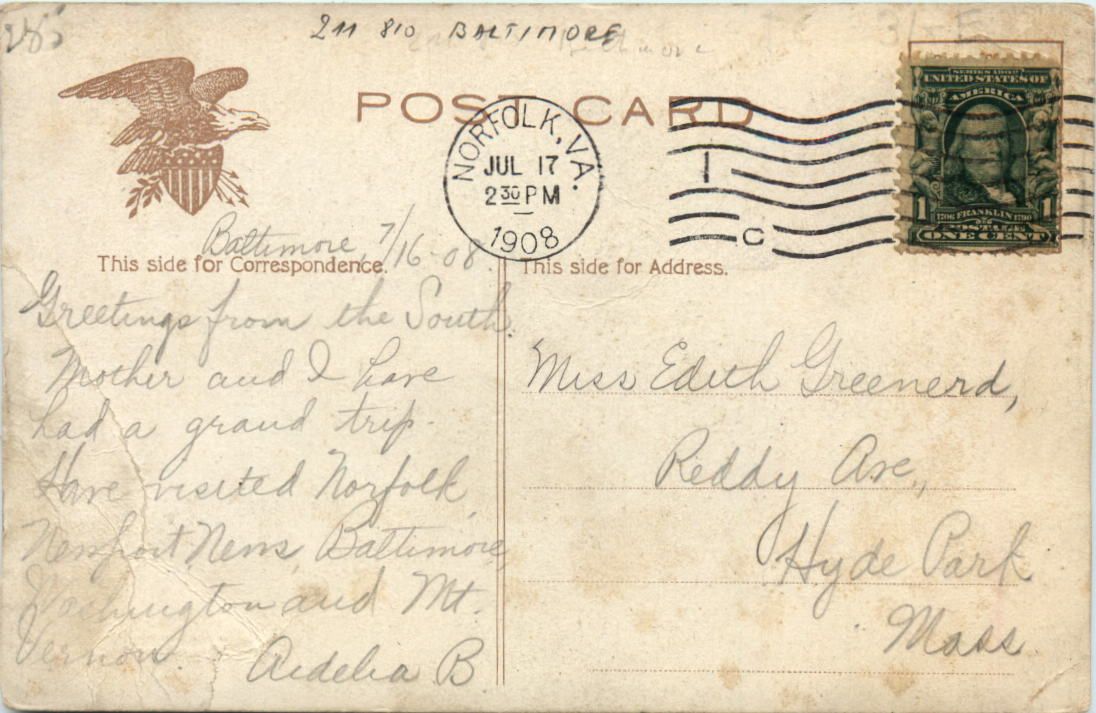 25
211 810 BALTIMORE
Baltimore
POST CARD
NORFOLK, VA.
JUL 17
2 30 PM
1908
1
C
SERIES 1902
UNITED STATES OF
AMERICA
1 1706 FRANKLIN 1790 1
POSTAGE
ONE CENT
Baltimore 7/16-08.
This side for Correspondence.
Greetings from the South
Mother and I have
had a grand trip.
Have visited Norfolk
Newport News, Baltimore,
Washington and Mt.
Vernon.
Aidelia B
This side for Address.
Miss Edith Greenerd,
Reddy Ave.,
Hyde Park
Mass